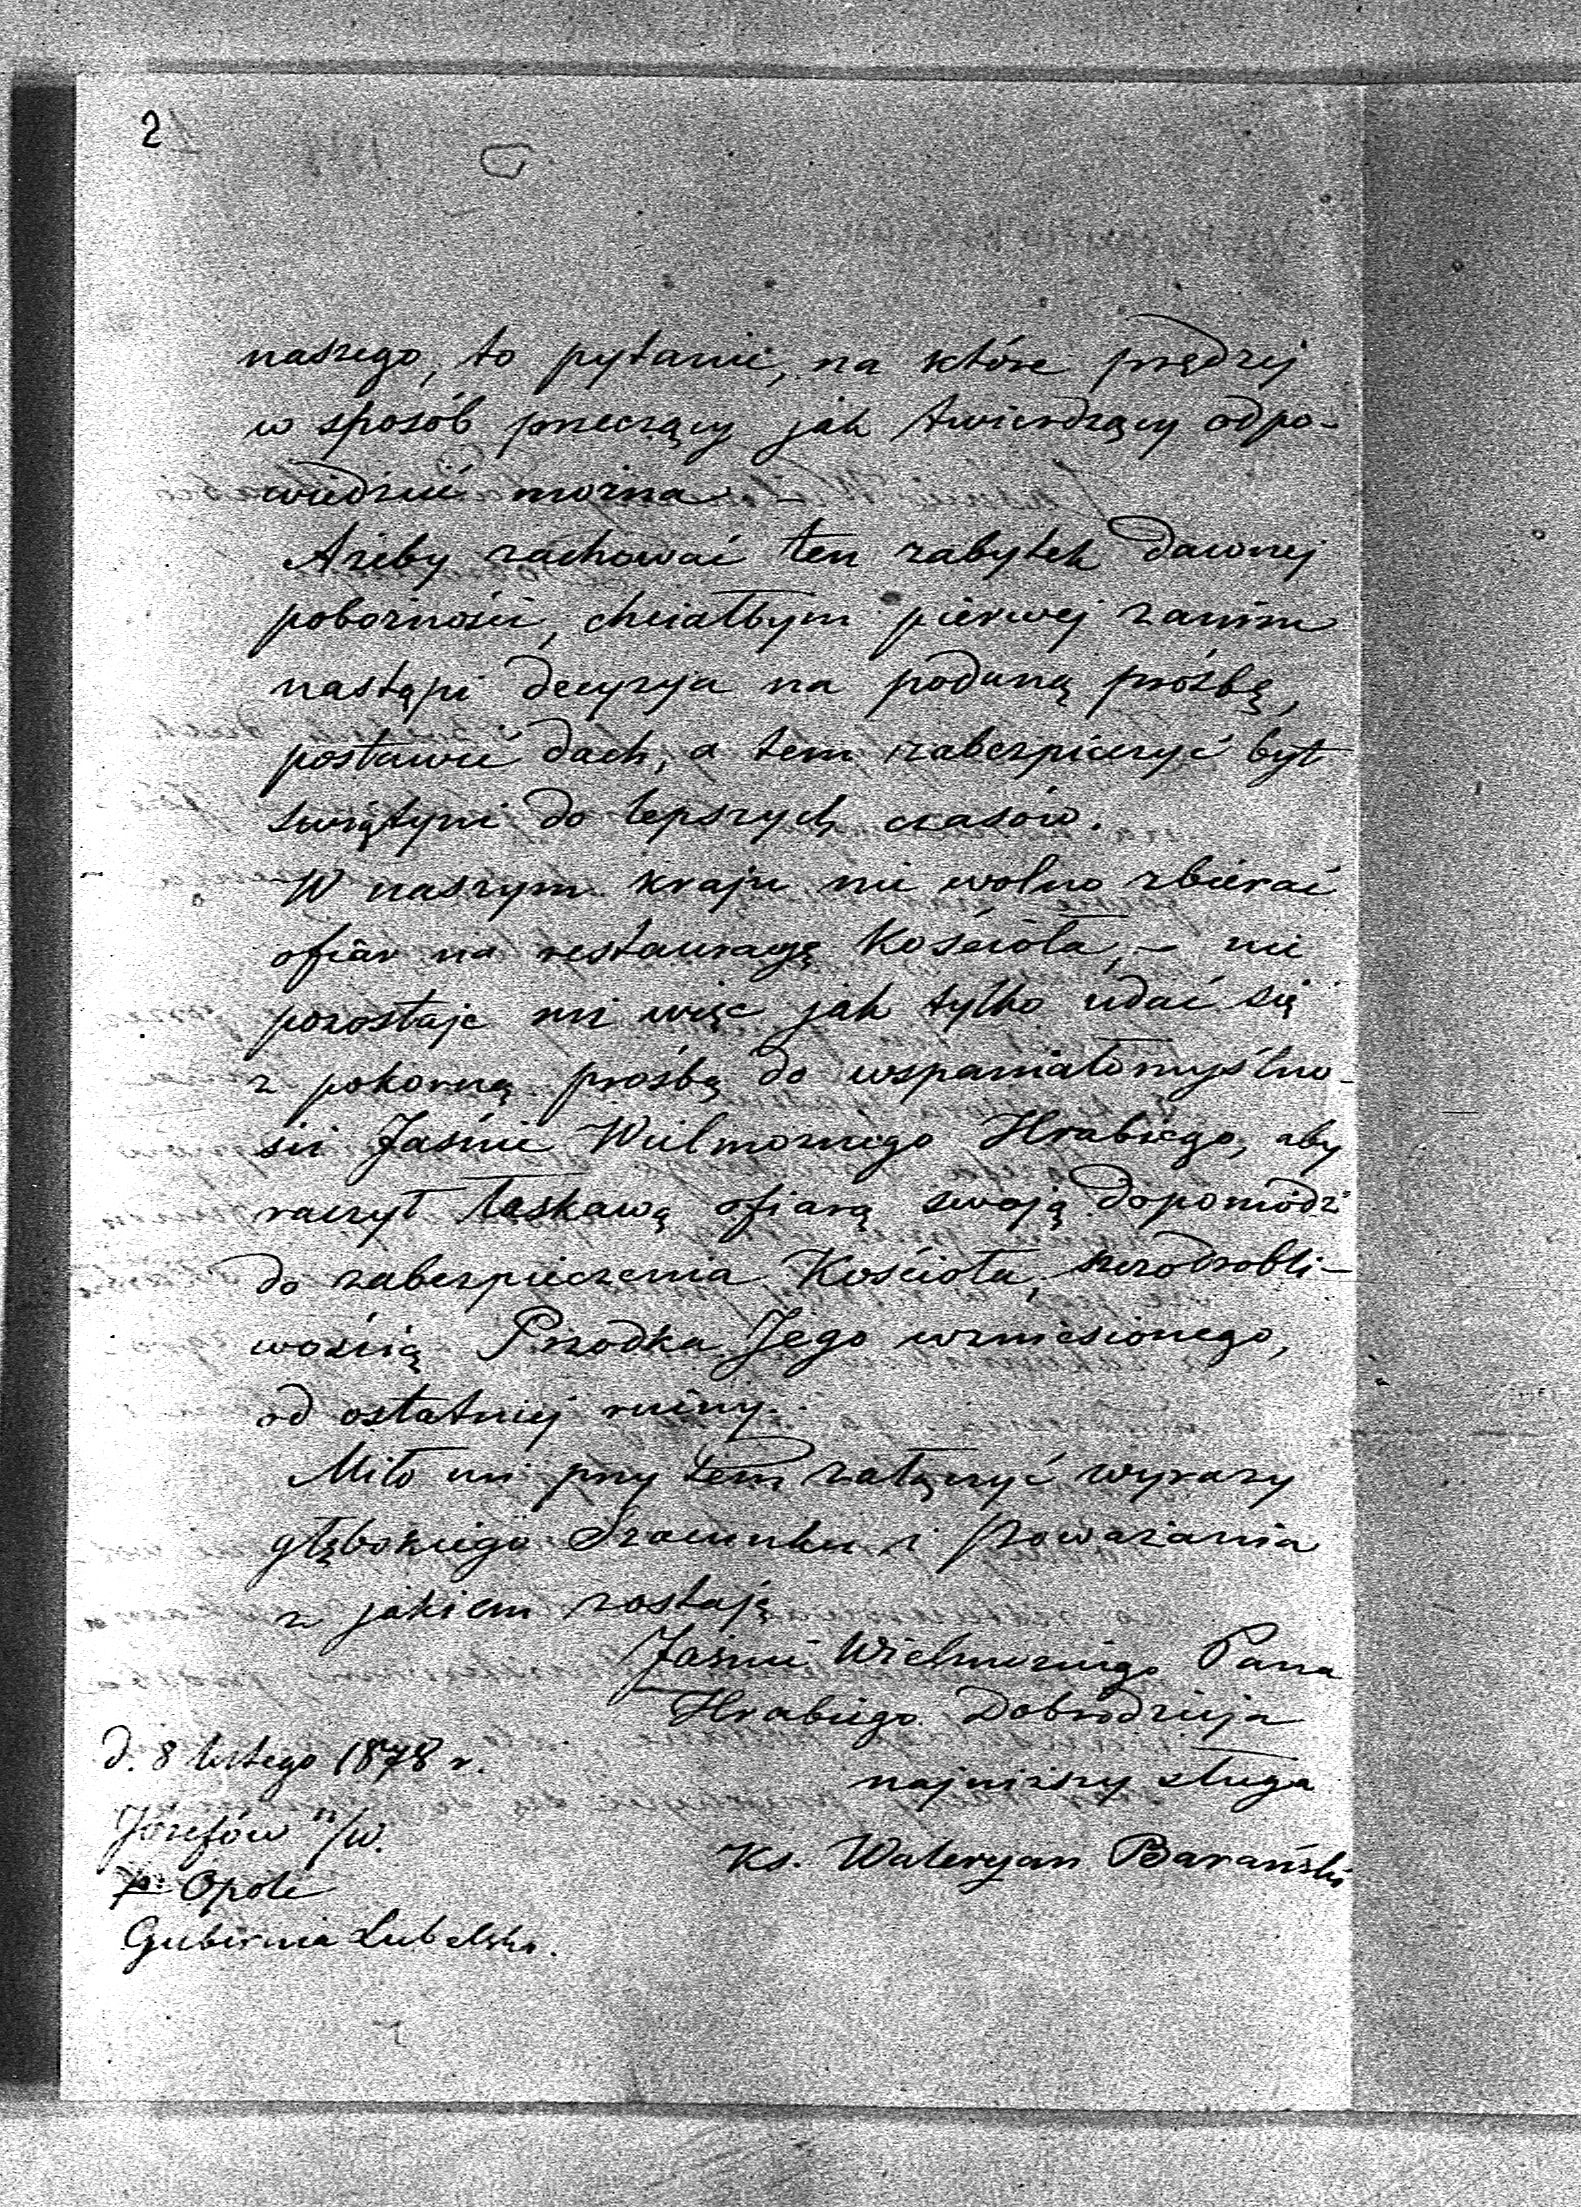 2
naszego, to pytanie, na które prędzej
w sposób przeczący jak twierdzący odpo-
wiedzieć można.
Ażeby zachować ten zabytek dawnej
pobożności, chciałbym pierwej zanim
nastąpi decyzya na podaną prośbę,
postawić dach, a tem zabezpieczyć byt
świątyni do lepszych czasów.
W naszym kraju nie wolno zbierać
ofiar na restauracyę Kościoła, – nie
pozostaje mi więc jak tylko udać się
z pokorną prośbą do wspaniałomyślno-
ści Jaśnie Wielmożnego Hrabiego, aby
raczył łaskawą ofiarą swoją dopomódz
do zabezpieczenia Kościoła, szczodrobli-
wością Przodka Jego wzniesionego,
od ostatniej ruiny.
Miło mi przy tem załączyć wyrazy
głębokiego Szacunku i Poważania
z jakiem zostaję
Jaśnie Wielmożnego Pana
Hrabiego Dobrodzieja
najniższy sługa
Ks. Waleryan Barański
d. 8 lutego 1878 r.
Józefów n/W.
p. Opole
Gubernia Lubelska.